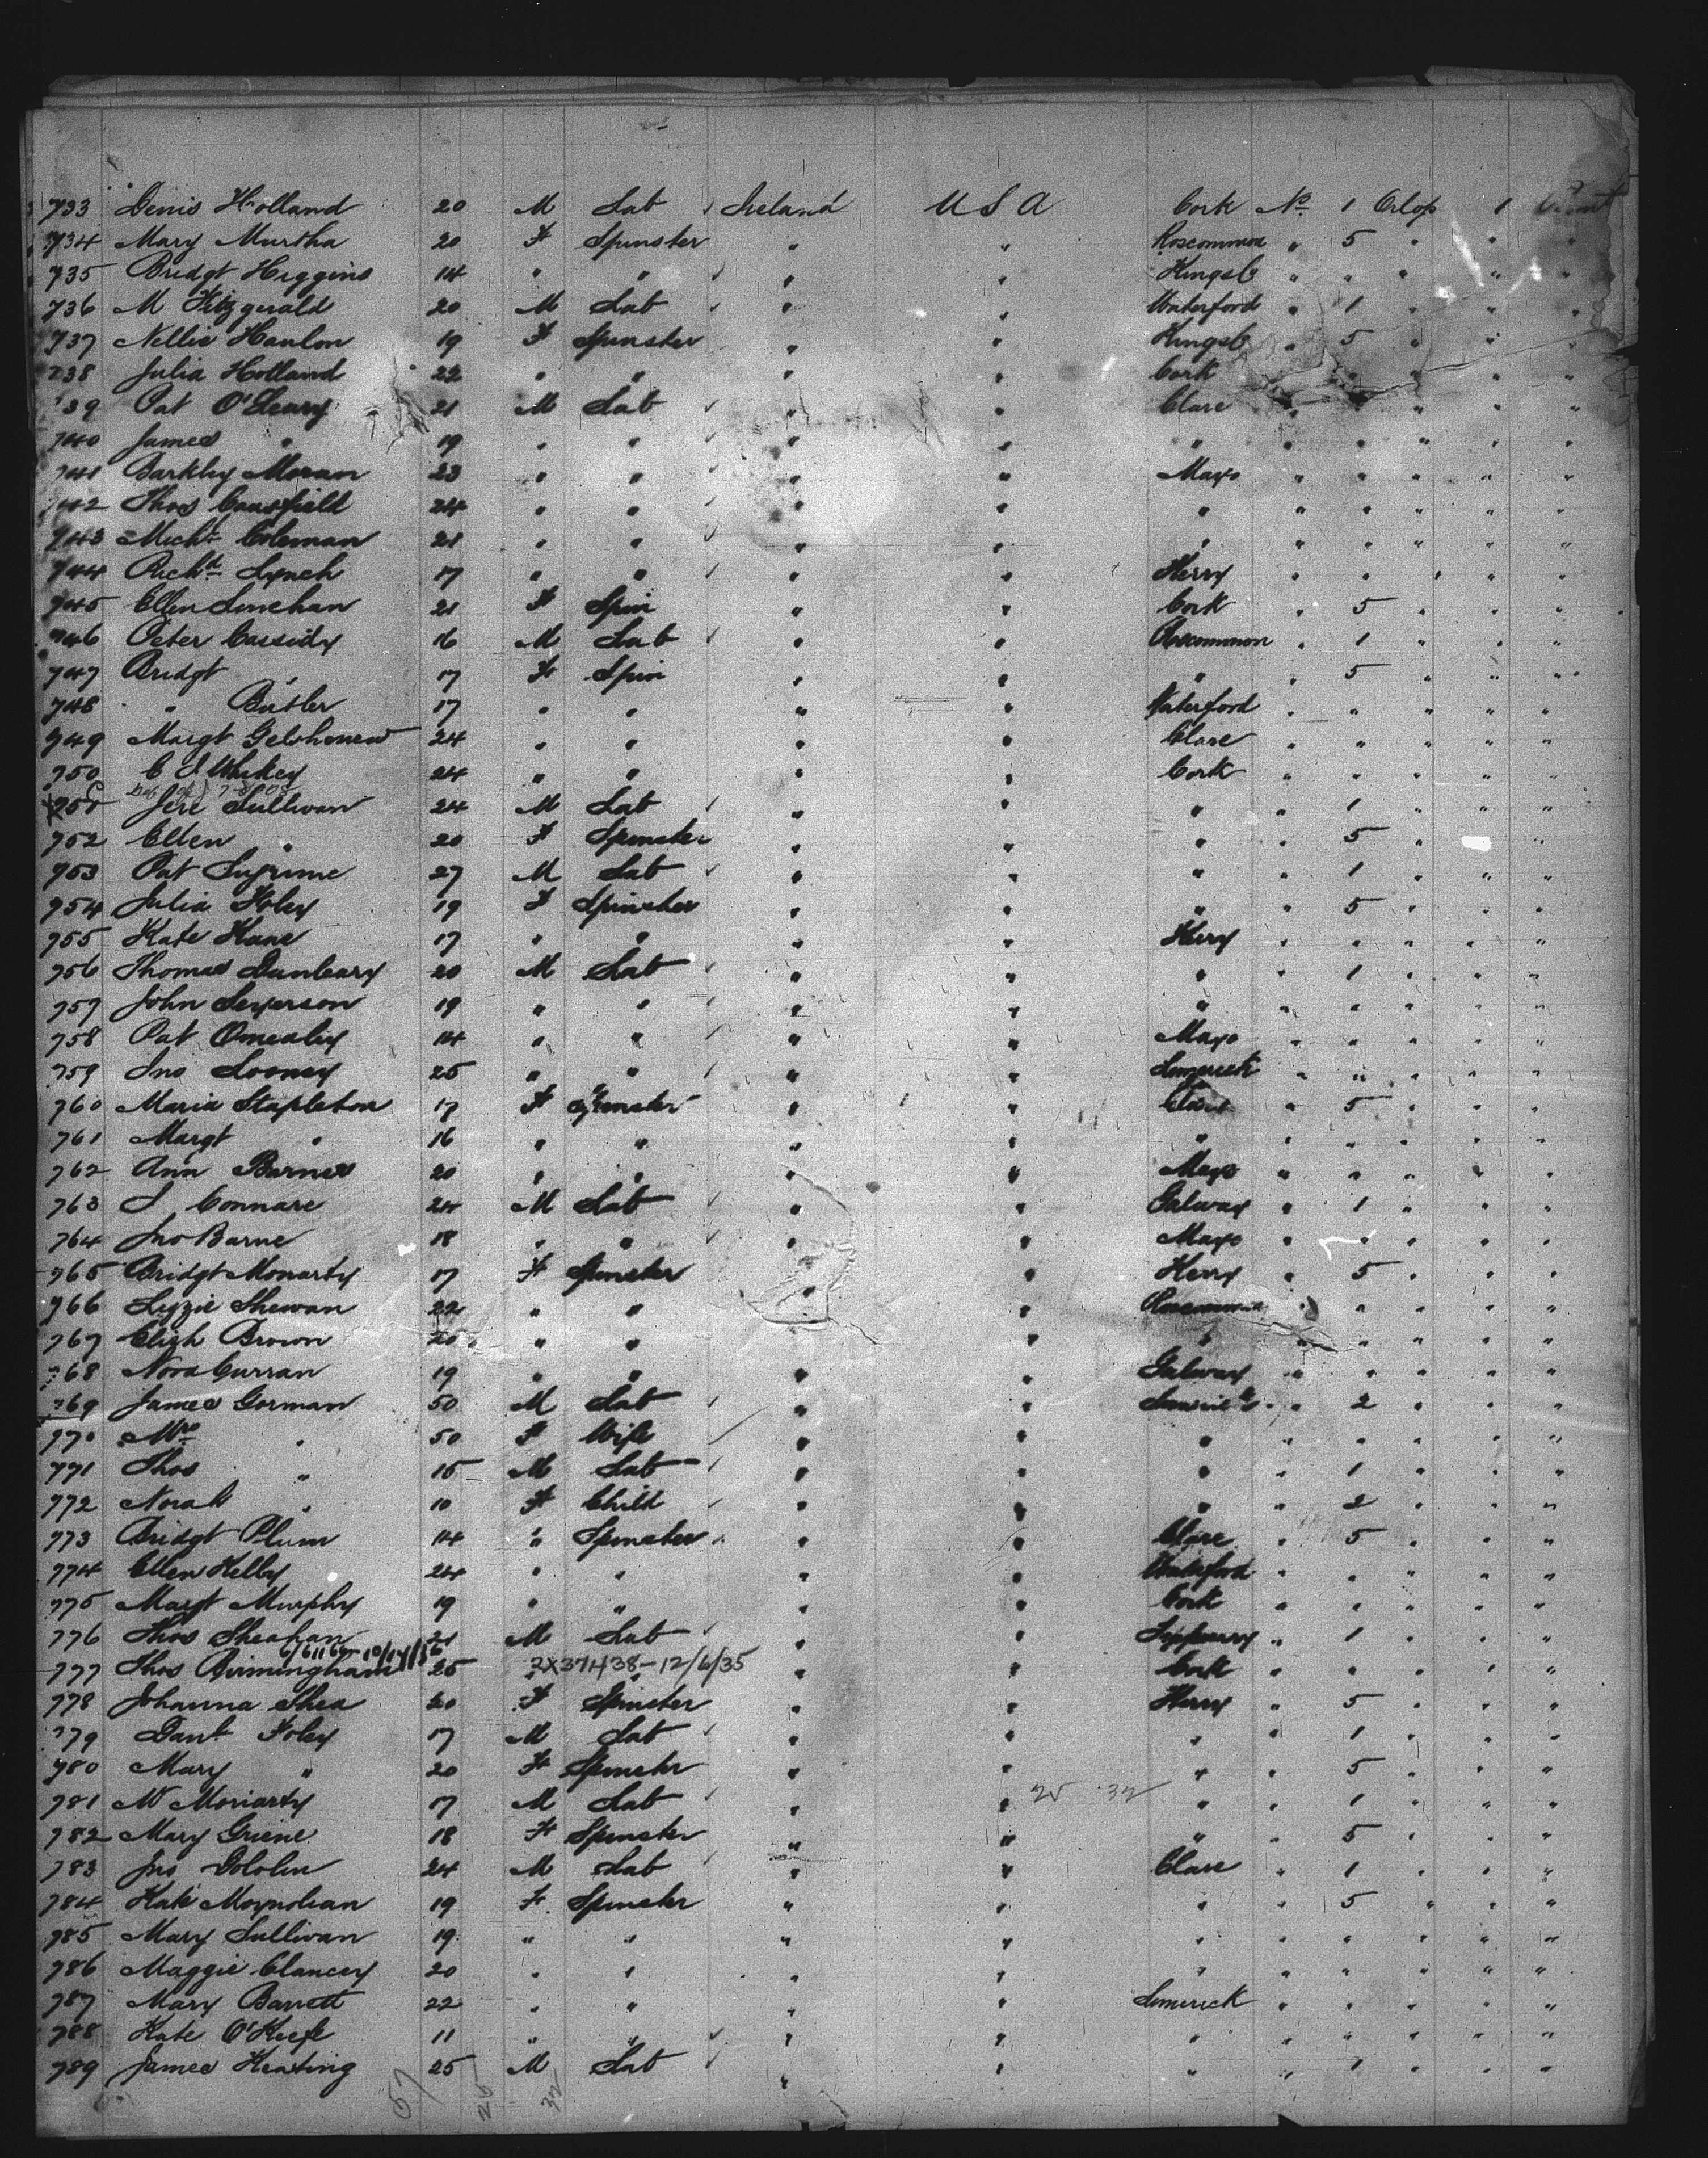 733 Denis Holland 20 M Lab Ireland U S A Cork No 1 Orlop 1
734 Mary Murtha 20 F Spinster " " Roscommon " 5 " " "
735 Bridgt Higgins 14 " " " " Kings Co " " " " "
736 M Fitzgerald 20 M Lab " " Waterford " 1 " " "
737 Nellie Hanlon 19 F Spinster " " Kings Co " 5 " " "
738 Julia Holland 22 " " " " Cork " " " " "
739 Pat O'Leary 21 M Lab " " Clare " 1 " " "
740 James " 19 " " " " " " " " " "
741 Barkley Moran 23 " " " " Mayo " " " " "
742 Thos 24 " " " " " " " " " "
743 Michl Coleman 21 " " " " " " " " " "
744 Richd Lynch 17 " " " " Kerry " " " " "
745 Ellen Linehan 21 F Spin " " Cork " 5 " " "
746 Peter Cassidy 16 M Lab " " Roscommon " 1 " " "
747 Bridgt " 17 F Spin " " " " 5 " " "
748 " Butler 17 " " " " Waterford " " " " "
749 Margt 24 " " " " Clare " " " " "
750 C 24 " " " " Cork " " " " "
751 Jere Sullivan 24 M Lab " " " " 1 " " "
752 Ellen " 20 F Spinster " " " " 5 " " "
753 Pat 27 M Lab " " " " 1 " " "
754 Julia Foley 19 F Spinster " " " " 5 " " "
755 Kate Kane 17 " " " " Kerry " " " " "
756 Thomas Dunleary 20 M Lab " " " " 1 " " "
757 John 19 " " " " " " " " " "
758 Pat Omealiy 14 " " " " Mayo " " " " "
759 Jno Looney 25 " " " " Limerick " " " " "
760 Maria Stapleton 17 F Spinster " " Clare " 5 " " "
761 Margt " 16 " " " " " " " " " "
762 Ann Barnes 20 " " " " Mayo " " " " "
763 Connare 24 M Lab " " Galway " 1 " " "
764 Jno Barne 18 " " " " Mayo " " " " "
765 Bridgt Moriarty 17 F Spinster " " Kerry " 5 " " "
766 Lizzie Shewan 22 " " " " Roscommon " " " " "
767 Brown 20 " " " " " " " " " "
768 Nora Curran 19 " " " " Galway " " " " "
769 James Gorman 50 M Lab " " Limerick " 2 " " "
770 Mrs " 50 F Wife " " " " " " " "
771 Thos " 15 M Lab " " " " 1 " " "
772 Norah " 10 F Child " " " " 2 " " "
773 Bridgt Plum 14 " Spinster " " Clare " 5 " " "
774 Ellen Kelly 24 " " " " Waterford " " " " "
775 Margt Murphy 19 " " " " Cork " " " " "
776 Thos Sheahan 21 M Lab " " Tipperary " 1 " " "
777 Thos Birmingham 25 2X37438-12/6/35 " " Cork " " " " "
778 Johanna Shea 20 F Spinster " " Kerry " 5 " " "
779 Danl Foley 17 M Lab " " " " 1 " " "
780 Mary " 20 F Spinster " " " " 5 " " "
781 M Moriarty 17 M Lab " " " " 1 " " "
782 Mary Griene 18 F Spinster " " " " 5 " " "
783 Jno 24 M Lab " " Clare " 1 " " "
784 Kate Moynihan 19 F Spinster " " " " 5 " " "
785 Mary Sullivan 19 " " " " " " " " " "
786 Maggie Clancey 20 " " " " " " " " " "
787 Mary Barrett 22 " " " " Limerick " " " " "
788 Kate O'Keefe 11 " " " " " " " " " "
789 James Keating 25 M Lab " " " " 1 " " "
57 25 32